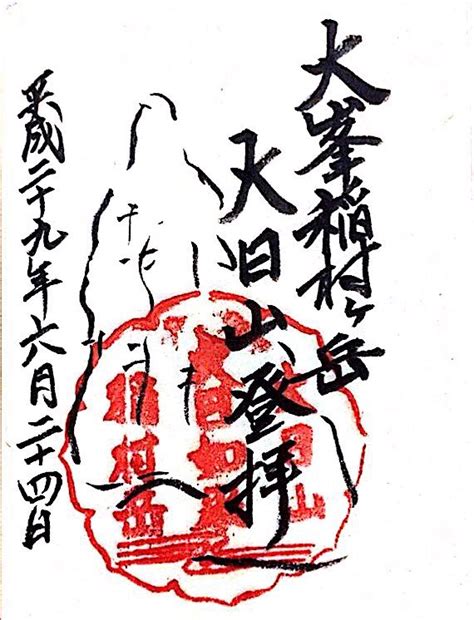 大峯稲村ヶ岳
大日山登拝
平成二十九年六月二十四日
稲村岳